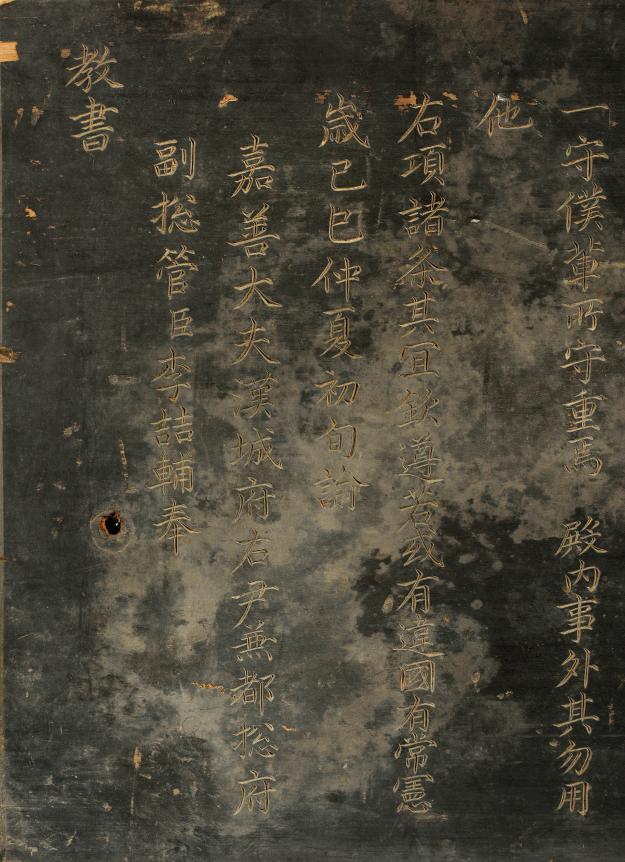 一守僕軰所守重焉　殿內事外其勿用
他
右項諸条其宜欽遵若或有違國有常憲
歲己巳仲夏初旬諭
嘉善大夫漢城府右尹兼都総府
副総管臣李喆輔奉
教書